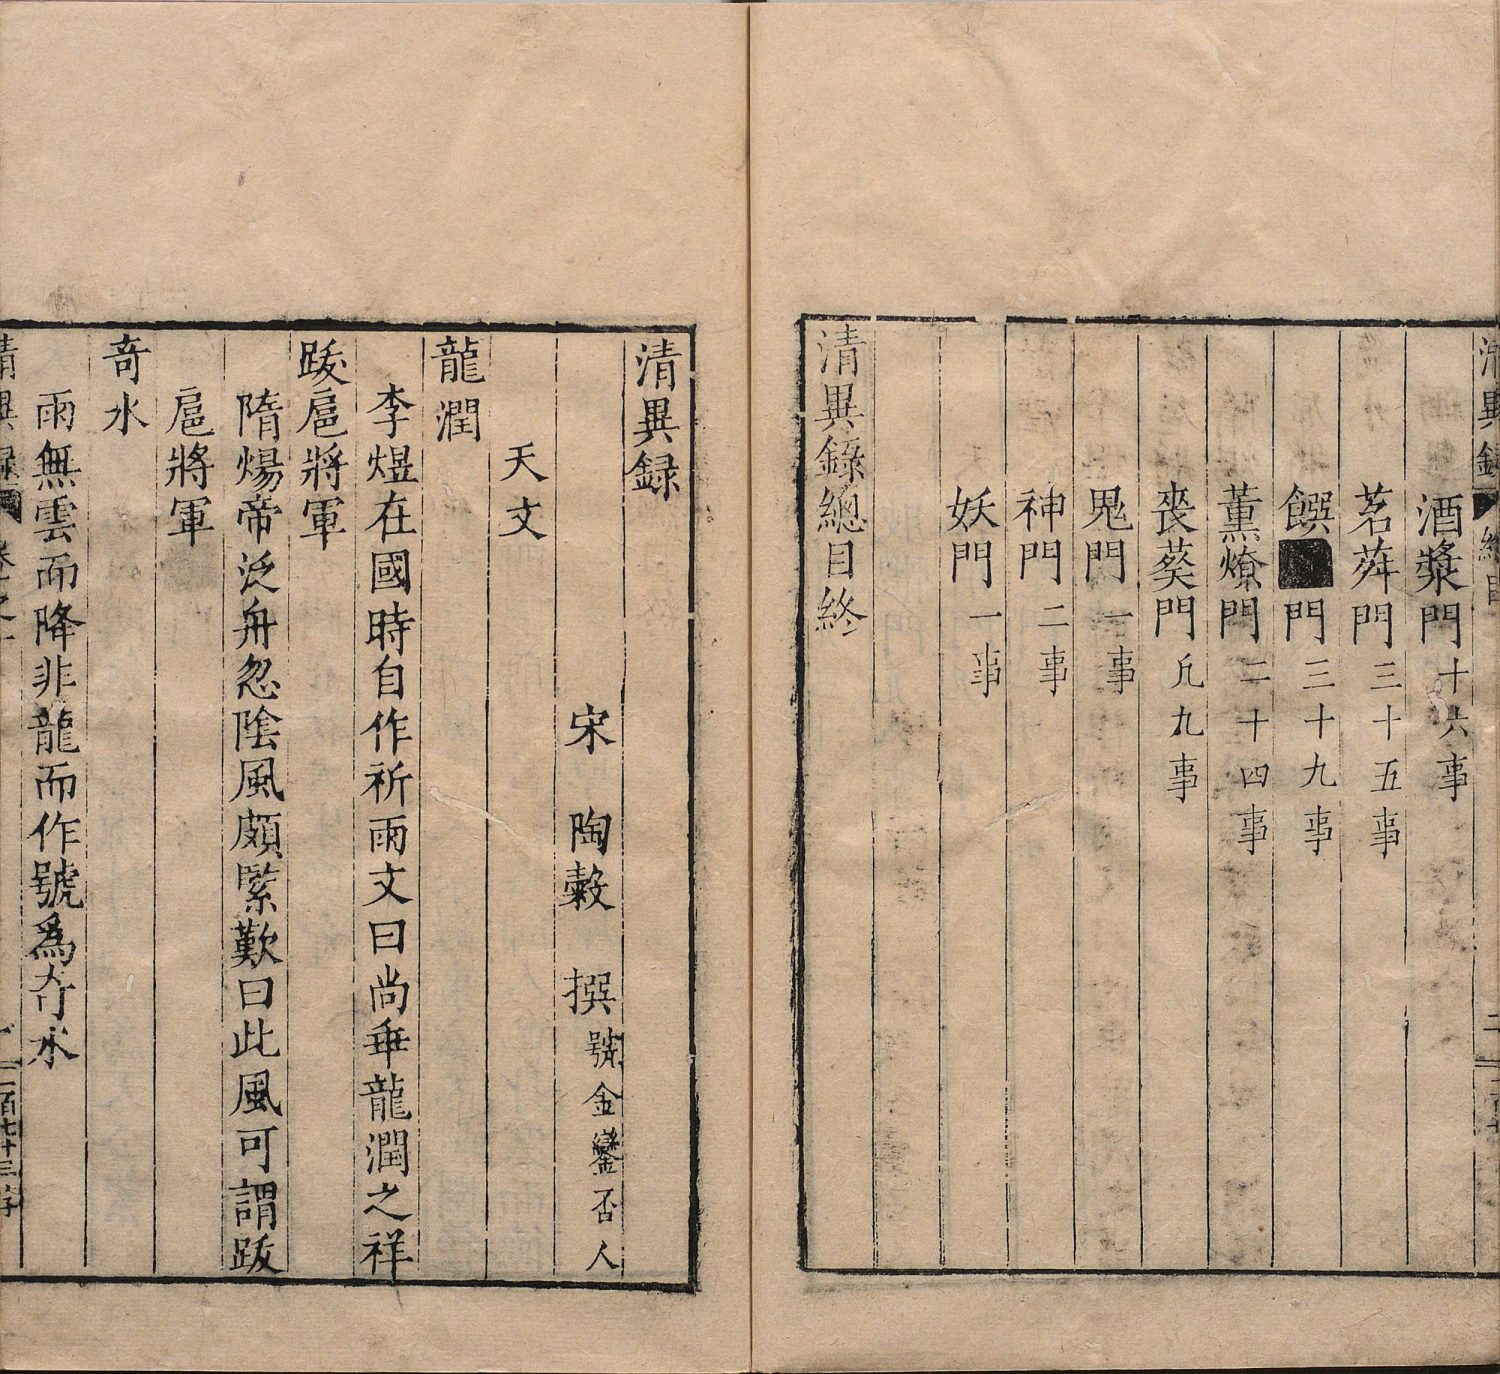 酒漿門十六事
茗荈門三十五事
饌門三十九事
薰燎門二十四事
喪葬門凡九事
鬼門一事
神門二事
妖門一事
清異錄總目終
清異録
宋 陶穀 撰號金鑾否人
天文
龍潤
李煜在國時自作祈雨文曰尚垂龍潤之祥
跋扈將軍
隋煬帝泛舟忽陰風頗緊歎曰此風可謂跋
扈將軍
奇水
雨無雲而降非龍而作號為奇水